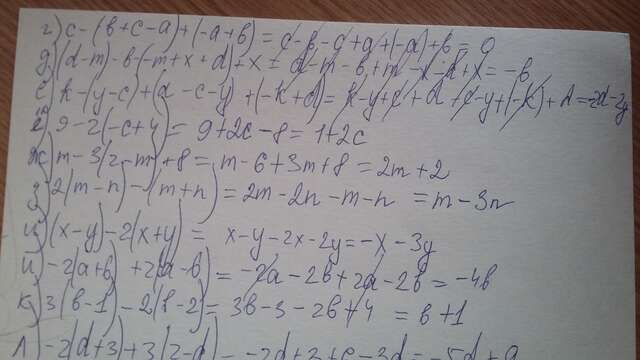 г) c-(в+c-a)+(-a+в)=c-в-c+a+(-a)+в=0
д) (d-m)-в-(-m+x+d)+x=d-m-в+m-x-d+x=-в
е) k-(y-c)+(d-c-y)+(-k+d)=k-y+c+d+c-y+(-k)+d=2d-2y
ё) 9-2(-c+4)=9+2c-8=1+2c
ж) m-3(2-m)+8=m-6+3m+8=2m+2
з) 2(m-n)-(m+n)=2m-2n-m-n=m-3n
и) (x-y)-2(x+y)=x-y-2x-2y=-x-3y
й) -2(a+в)+2(a-в)=-2a-2в+2a-2в=-4в
к) 3(в-1)-2(в-2)=3в-3-2в+4=в+1
л) -2(d+3)+3(2-d)=